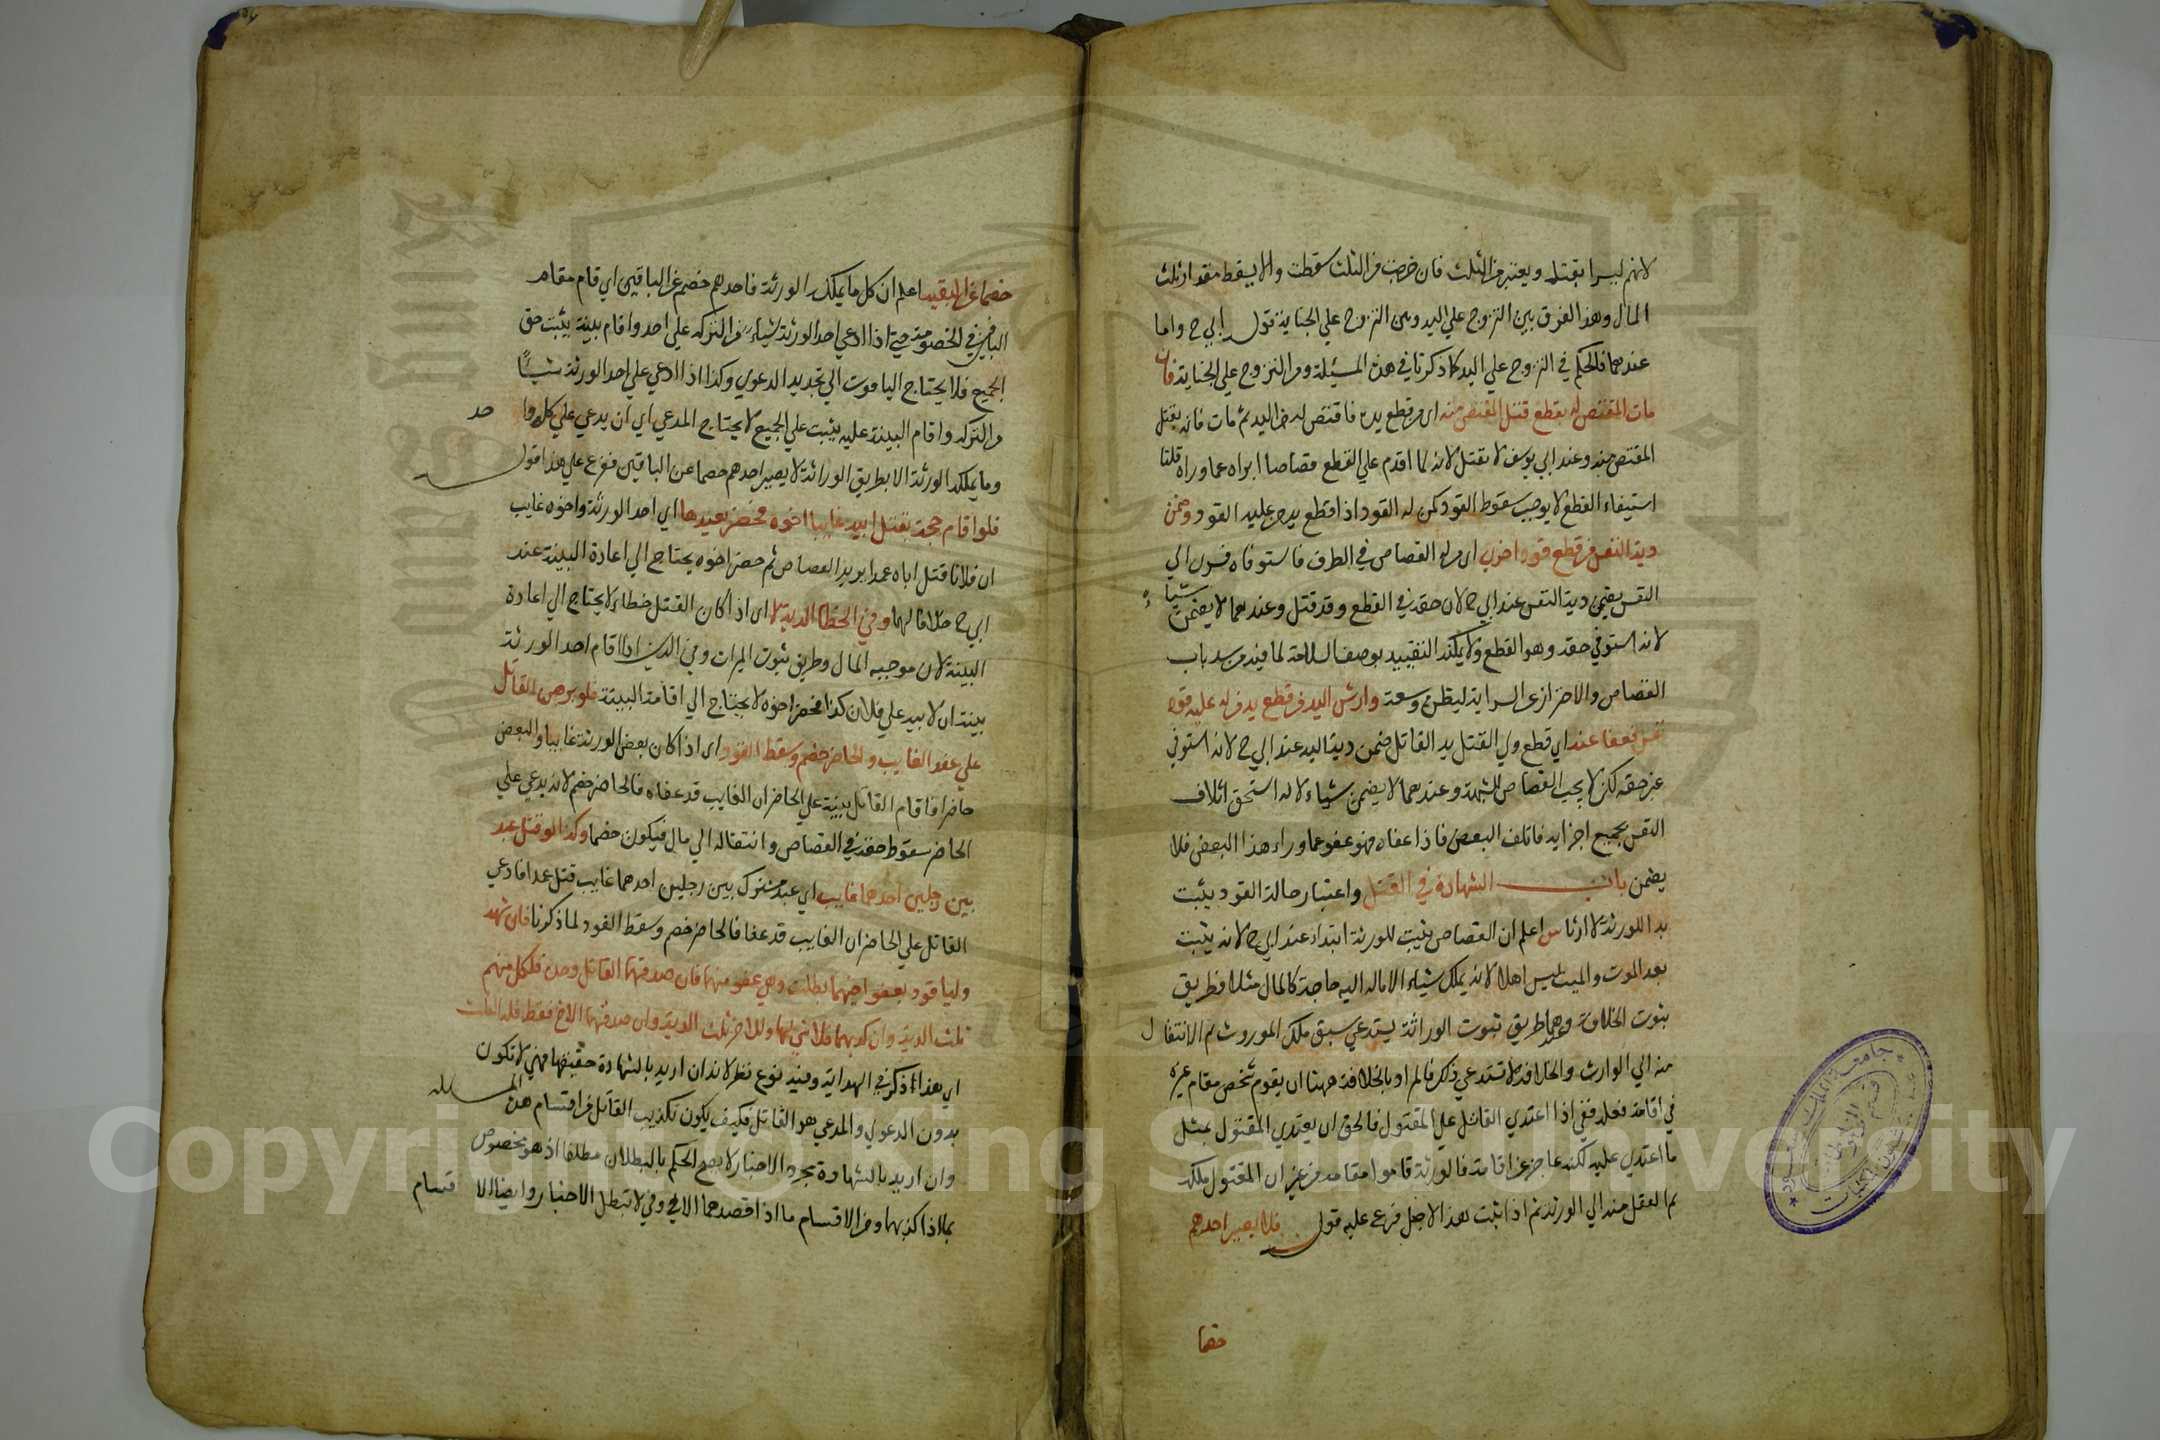 لانهم ليسرا بقتله ويعتبر من الثلث فان خرجت من الثلث سقطت والا يسقط مقدار ثلث
المال وهذا الفرق بين التزوج علي اليد وبين التزوج علي الجناية قول ابي ح واما
عندهما فالحكم في التزوج علي اليد كما ذكرنا في هذه المسئلة ومن التزوج علي الجناية فان
مات المقتص له بقطع قتل المقتص منه اي من قطع يده فاقتص له من اليد ثم مات فانه يقتل
المقتص منه وعند ابي يوسف لا يقتل لانه لما اقدم علي القطع قصاصا ابراه عما وراه قلنا
استيفاء القطع لا يوجب سقوط القود كمن له القود اذا قطع يد من عليه القود وضمن
دية النفس من قطع قودا فسري اي من له القصاص في الطرف فاستوفاه فسري الي
النفس يضمن دية النفس عند ابي ح لان حقه في القطع وقد قتل وعندهما لا يضمن شيئا
لانه استوفي حقه وهو القطع ولا يمكنه التقييد بوصف السلامة لما فيه من سد باب
القصاص والاحتراز عن السراية ليظن في وسعه وارش اليد من قطع يد من له عليه قود
نفس فعفا عنه اي قطع ولي القتل يد القاتل ضمن دية اليد عند ابي ح لانه استوفي
غير حقه لكن لا يجب القصاص للشبهة وعندهما لا يضمن شياء لانه استحق اتلاف
النفس بجميع اجزايه فاتلف البعض فاذا عفاه فهو عفو عما وراء هذا البعض فلا
يضمن باب الشهادة في القتل واعتبار حالة القود يثبت
بدا للورثة لا ارثا س اعلم ان القصاص يثبت للورثة ابتداء عند ابي ح لانه يثبت
بعد الموت والميت ليس اهلا لانه يملك شياء الا ماله اليه حاجة كالمال مثلا فطريق
ثبوت الخلافة وعندهما طريق ثبوت الوراثة يستدعي سبق ملك الموروث ثم الانتقال
منه الي الوارث والخلافة لا تستدعي ذلك فالمراد بالخلافة ههنا ان يقوم شخص مقام غيره
في اقامة فعله ففي اذا اعتدي القاتل علي المقتول فالحق ان يعتدي المقتول بمثل
ما اعتدي عليه لكنه عاجز عن اقامته فالورثة قاموا مقامه من غير ان المقتول ملكه
ثم انتقل منه الي الورثة ثم اذا ثبت هذا الاصل فرع عليه قوله فلا يصير احدهم
خصما
خصما عن البقية اعلم ان كل ما يملكه الورثة فاحدهم خصم عن الباقين اي قام مقام
الباقين في الخصومة حتي اذا ادعي احد الورثة شياء من التركه علي احد واقام بينة يثبت حق
الجميع فلا يحتاج الباقون الي تجديد الدعوي وكذا اذا ادعي علي احد الورثة شيئا
من التركه واقام البينة عليه يثبت علي الجميع لا يحتاج المدعي اي ان يدعي علي كل واحد
وما يملكه الورثة لا بطريق الوراثة لا يصير احدهم خصما عن الباقين ففرع علي هذا قوله
فلو اقام حجة بقتل ابيه غايبا اخوه فحضر يعيدها اي احد الورثة واخوه غايب
ان فلانا قتل اباه عمدا يريد القصاص ثم حضر اخوه يحتاج الي اعادة البينة عند
ابي ح خلافا لهما وفي الخطا والدين لا اي اذا كان القتل خطاء لا يحتاج الي اعادة
البينة لان موجبه المال وطريق ثبوت الميراث ومن الدين اذا اقام احد الورثة
بينة ان لابيه علي فلان كذا فحضر اخوه لا يحتاج الي اقامة البينة فلو برهن القاتل
علي عفو الغايب والحاضر خصم وسقط القود اي اذا كان بعض الورثة غايبا والبعض
حاضرا فاقام القاتل بينة علي الحاضر ان الغايب قد عفاه فالحاضر خصم لانه يدعي علي
الحاضر سقوط حقه في القصاص وانتقاله الي مال فيكون خصما وكذا لو قتل عبد
بين رجلين احدهما غايب اي عبد مشترك بين رجلين احدهما غايب قتل عمدا فادعي
القاتل علي الحاضر ان الغايب قد عفا فالحاضر خصم وسقط القود لما ذكرنا فان شهد
وليا قود بعفو اخيهما بطلت وهي عفو منهما فان صدقهما القاتل وحده فلكل منهم
ثلث الدية وان كذبهما فلا شي لهما وللاخر ثلث الدية وان صدقهما الاخ فقط فله الثلث
اي هذا ذكر في الهداية وفيه نوع نظر لانه ان اريد بالشهادة حقيقتها فهي لا تكون
بدون الدعوي والمدعي هو القاتل فكيف يكون تكذيب القاتل من اقسام هذه المسئله
وان اريد بالشهادة مجرد الاخبار لا يصح الحكم بالبطلان مطلقا اذ هو مخصوص
بما اذا كذبهما ومن الاقسام ما اذا صدقهما الاخ وفي لا تبطل الاخبار وايضا الاقسام
Copyright © King Saud University
جامعة الملك سعود